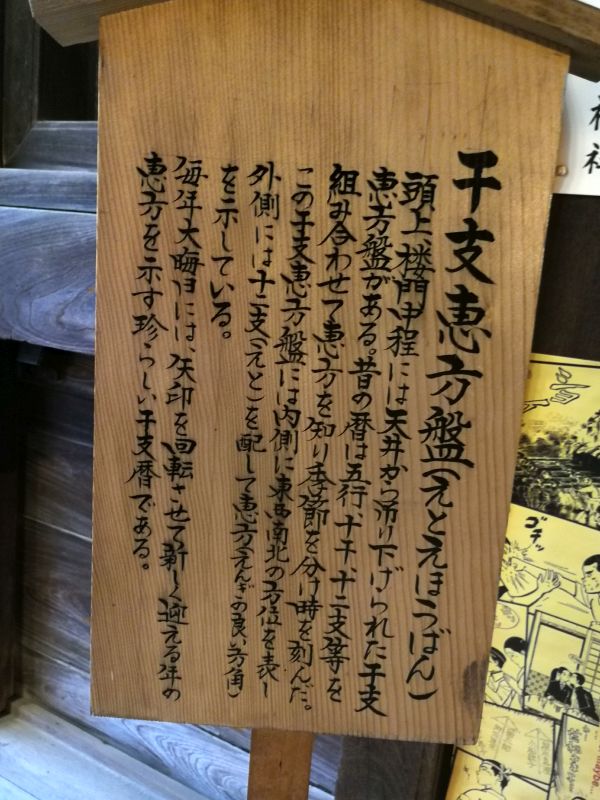 干支恵方盤(えとえほうばん)
頭上、楼門中程には天井から吊り下げられた干支
恵方盤がある。昔の暦は五行、十干、十二支等を
組み合わせて恵方を知り季節を分け時を刻んだ。
この干支恵方盤には内側に東西南北の方位を表し
外側には十二支(えと)を配して恵方(えんぎの良い方角)
を示している。
毎年大晦日には、矢印を回転させて新しく迎える年の
恵方を示す珍らしい干支暦である。
ゴチッ